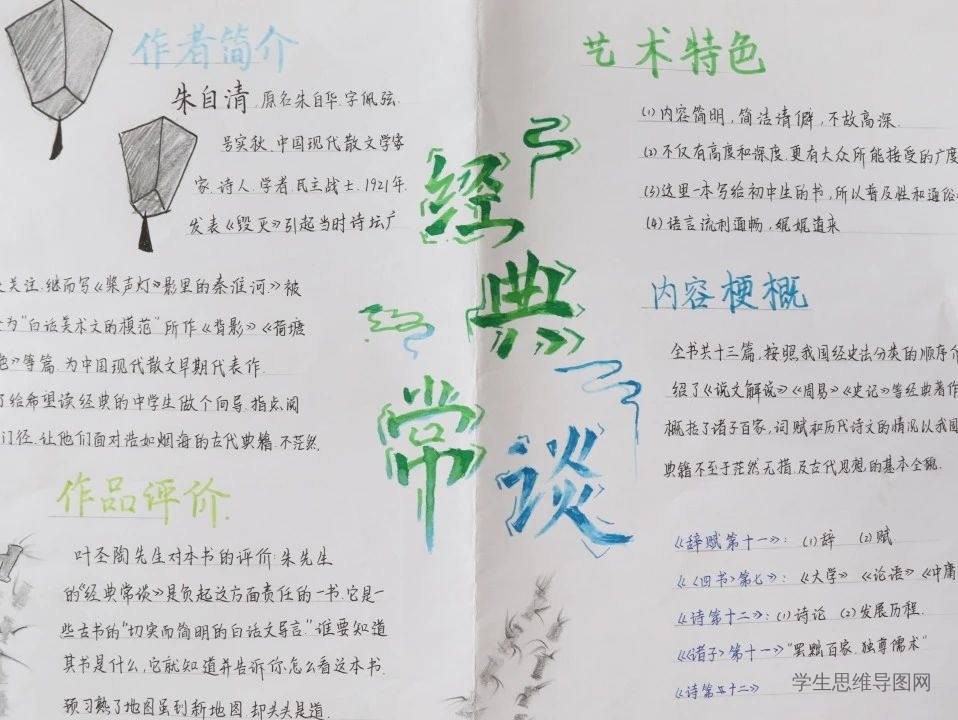 作者简介
朱自清,原名朱自华.字佩弦.
号实秋.中国现代散文学家
家.诗人.学者.民主战士.1921年.
发表《毁灭》引起当时诗坛广
关注.继而写《桨声灯》影里的秦淮河.》被
为"白话美术文的模范"所作《背影》《荷塘
》等篇.为中国现代散文早期代表作.
给希望读经典的中学生做个向导.指点阅
门径.让他们面对浩如烟海的古代典籍.不茫然.
作品评价.
叶圣陶先生对本书的评价:朱先生
的"经典常谈》是负起这方面责任的一书.它是一
些古书的"切实而简明的白话文导言."谁要知道
某书是什么,它就知道并告诉你.怎么看这本书.
预习熟了地图虽到新地图.却头头是道.
经
典
常
谈
艺术特色
(1)内容简明,简洁清僻,不故高深.
(2)不仅有高度和深度.更有大众所能接受的广度
(3)这里一本写给初中生的书,所以普及胜和通俗
(4)语言流利通畅,娓娓道来
内容梗概
全书共十三篇,按照我国经史法分类的顺序介
绍了《说文解说》《周易》《史记》等经典著作
概括了诸子百家,词赋和历代诗文的情况以我国
典籍不至于茫然无措.及古代的基本全貌.
《辞赋第十一》: (1)辞 (2)赋
《〈四书〉第七》: 《大学》 《论语》 《中庸
《诗第十二》:(1)诗论 (2)发展历程.
《《诸子》第十一》"罢黜百家.独尊儒术"
《诗第十二》
学生思维导图网